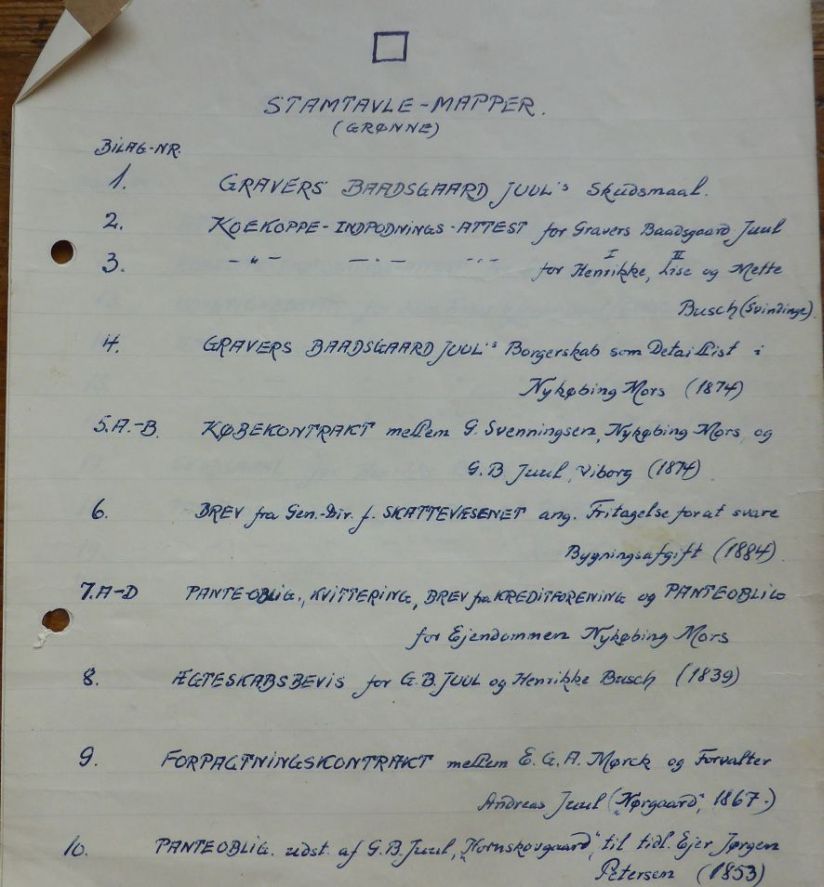 STAMTAVLE-MAPPER.
(GRØNNE)
BILAG-NR.
1. GRAVERS BAADSGAARD JUUL's Skudsmaal.
2. KOEKOPPE-INDPODNINGS-ATTEST for Gravers Baadsgaard Juul
3. -"- -"- -"- for Henrikke, I Lise og II Mette
Busch (Svindinge).
4. GRAVERS BAADSGAARD JUUL's Borgerskab som Detaillist i
Nykøbing Mors (1874)
5.A.-B. KØBEKONTRAKT mellem G. Svenningsen, Nykøbing Mors, og
G.B. Juul, Viborg (1874)
6. BREV fra Gen.-Dir. f. SKATTEVÆSENET ang. Fritagelse for at svare
Bygningsafgift (1884).
7.A-D PANTE-OBLIG., KVITTERING, BREV fra KREDITFORENING og PANTEOBLIG
for Ejendommen Nykøbing Mors
8. ÆGTESKABSBEVIS for G.B. JUUL og Henrikke Busch (1839)
9. FORPAGTNINGSKONTRAKT mellem E.G.A. Mørck og Forvalter
Andreas Juul ("Nørgaard", 1867.)
10. PANTEOBLIG. udst. af G.B. Juul, "Hornskovgaard", til tidl. Ejer Jørgen
Petersen (1853)